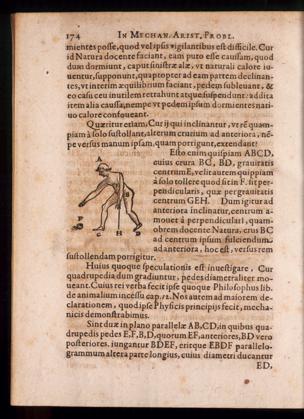 174 IN MECHAN. ARIST. PROBL.
mientes posse, quod vel ipsis vigilantibus est difficile. Cur
id Natura docente faciant, eam puto esse caussam, quod
dum dormiunt, caput sinistræ alæ, vt naturali calore iu-
uentur, supponunt, quapropter ad eam partem declinan-
tes, vt interim æquilibrium faciant, pedem subleuant, &
eo casu ceu inutilem retrahunt atque suspendunt: addita
item alia caussa, nempe vt pedem ipsum dormientes nati-
uo calore confoueant.
Quæritur etiam, Cur ij qui inclinantur, vt rē quam-
piam à solo sustollant, alterum crurium ad anteriora, nē-
pe versus manum ipsam, quam porrigunt, extendant?
Esto enim quispiam ABCD,
cuius crura BC, BD, grauitatis
centrum E, velit autem quippiam
à solo tollere quod sit in F. fit per-
pendicularis, quæ per grauitatis
centrum GEH. Dum igitur ad
anteriora inclinatur, centrum a-
mouet à perpendiculari, quam-
obrem docente Natura, crus BC
ad centrum ipsum fulciendum,
ad anteriora, hoc est, versus rem
sustollendam porrigitur.
Huius quoque speculationis est inuestigare, Cur
quadrupedia dum gradiuntur, pedes diametraliter mo-
ueant. Cuius rei verba fecit ipse quoque Philosophus lib.
de animalium incessu cap. 12. Nos autem ad maiorem de-
clarationem, quod ipse Physicis principijs fecit, mecha-
nicis demonstrabimus.
Sint duæ in plano parallelæ AB, CD, in quibus qua-
drupedis pedes E, F, B, D, quorum EF, anteriores, BD vero
posteriores. iungantur BDEF, eritque EBDF parallelo-
grammum altera parte longius, cuius diametri ducantur
ED,
A
E
B
F
C
H
D